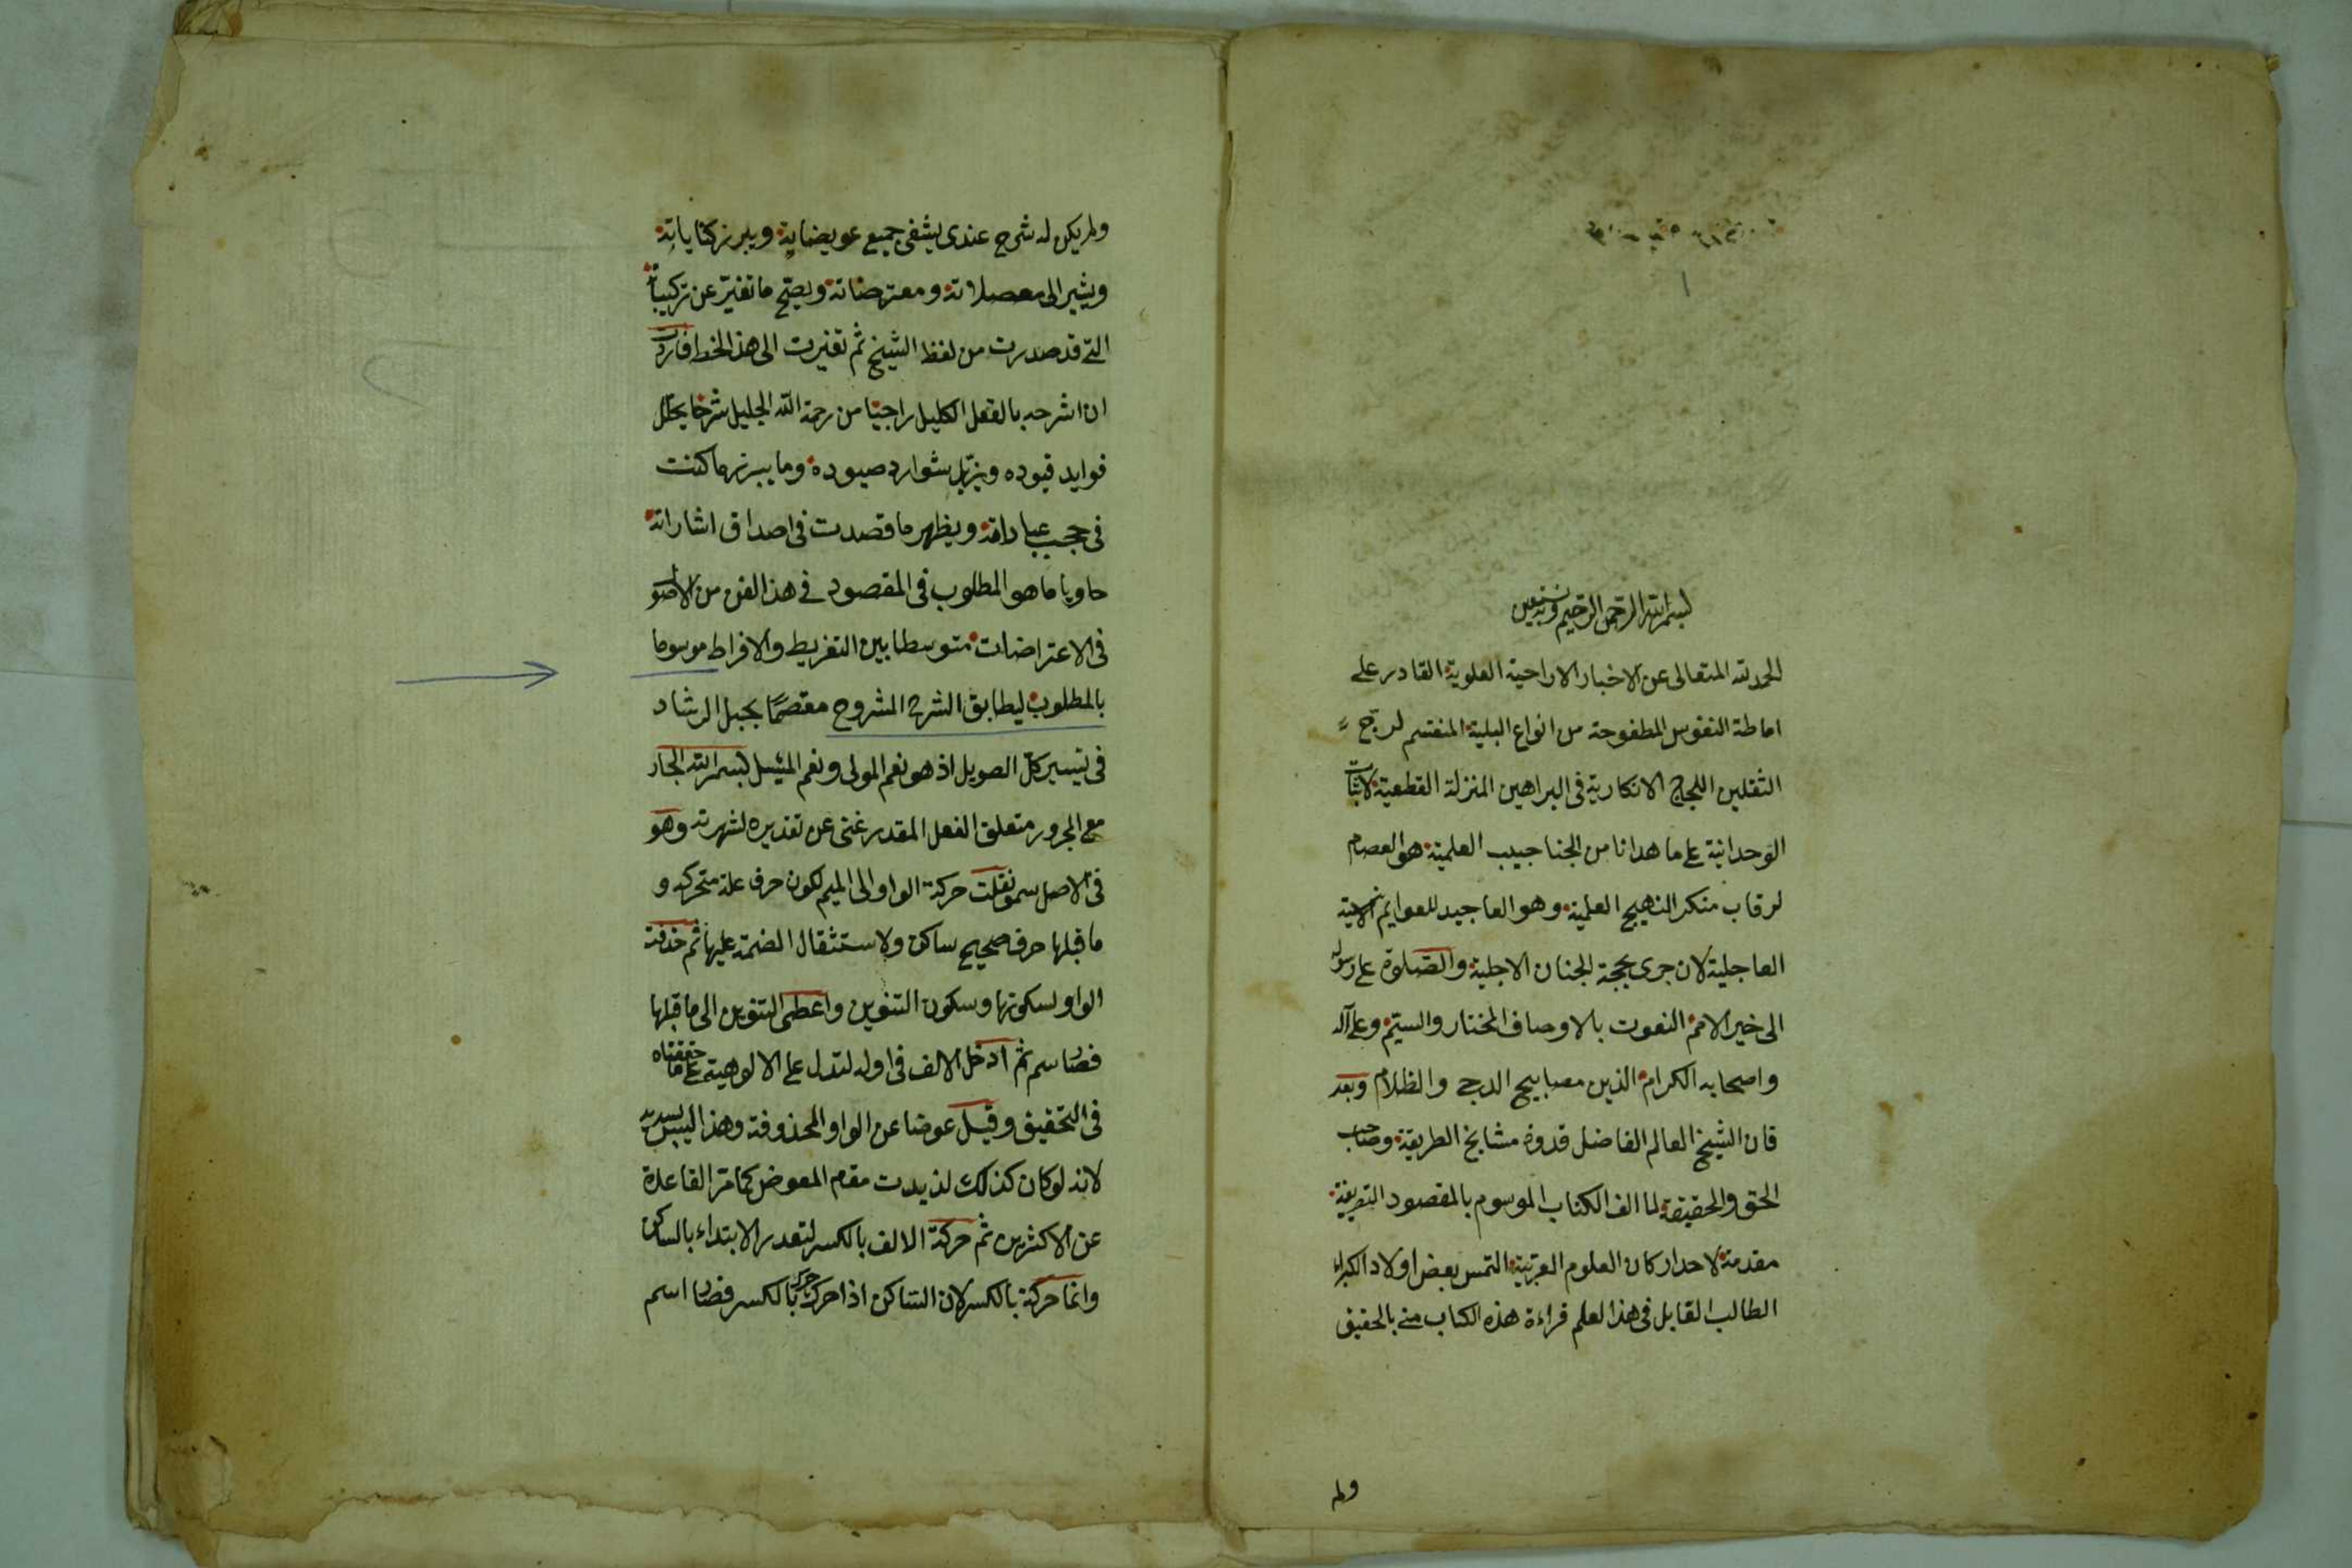 بسم الله الرحمن الرحيم وبه نستعين
الحمد لله المتعالى عن الاخبار الاراحية العلوية القادر على
اماطة النفوس المطفوحة من انواع البلية المنقسم لرجح
الثقلين اللجج الانكارية فى البراهين المنزلة القطعية لاثبات
الوحدانية على ما هدانا من الجناجيب العلمية هو العصام
لرقاب منكر النهيج العلمية وهو العاجيد للعوايم
العاجلية لان جرى بججة الجنان الاجلية والصلوة على رسوله
الى خير الامم النعوت بالاوصاف المختار والستم وعلى آله
واصحابه الكرام الذين مصابيح الدجى والظلام وبعد
فان الشيخ العالم الفاضل قدوة مشايخ الطريقة وصاحب
الحق والحقيقة لما الف الكتاب الموسوم بالمقصود التصريفية
مقدمة لاحد اركان العلوم العربية التمس بعض اولاد الكبراء
الطالب القابل فى هذا لعلم قراءة هذه الكتاب منى بالحقيق
ولم
ولم يكن له شرح عندى يشفى جميع عويضاته ويبرز كناياته
ويشير الى معصلاته ومعترضاته ويصحح ما تغير عن تركيباته
التى قد صدرت من لفظ الشيخ ثم تغيرت الى هذ الخط فاردت
ان اشرحه بالفعل الكليل راجيا من رحمة الله الجليل شرحا يحلل
فوايد قيوده ويزيل شوارد صيوده وما يبرز ما كنت
فى حجب عباراته ويظهر ما قصدت فى اصداق اشاراته
حاويا ما هو المطلوب فى المقصود فى هذ الفن من الاصو
فى الاعتراضات متوسطا بين التفريط والافراط موسوما
بالمطلوب ليطابق الشرح المشروح معتصمًا بحبل الرشاد
فى تيسير كل الصويل اذ هو نعم المولى ونعم الميسل بسم الله الجار
مع المجرور متعلق الفعل المقدر غنى عن تقديره لشهرته وهو
فى الاصل سمو نقلت حركة الواو الى الميم لكون حرف علة متحركه و
ما قبلها حرف صحيح ساكن ولاستثقال الضمة عليها ثم حذفت
الواو لسكونها وسكون التنوين واعطى التنوين الى ما قبلها
فصار سم ثم ادخل الالف فى اوله لتدل على الالوهية على ما حققناه
فى التحقيق وقيل عوضا عن الواو المحذوفة وهذا ليس بسديد
لانه لو كان كذلك لزيدت مقام المعوض كما مر القاعدة
عن الاكثرين ثم حركة الالف بالكسر لتعدر الابتداء بالساكن
وانما حركة بالكسر لان الساكن اذا حرك حرك بالكسر فصار اسم